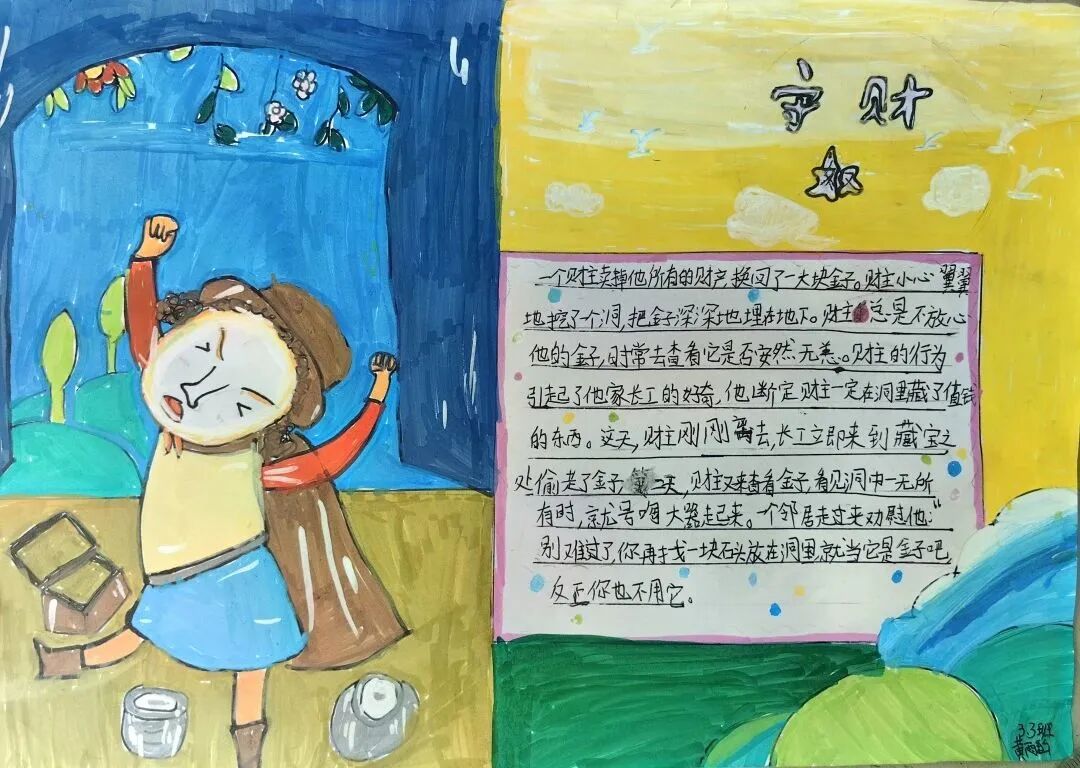 守财
奴
一个财主卖掉他所有的财产换回了一大块金子。财主小心翼翼
地挖了个洞，把金子深深地埋在地下。财主总是不放心
他的金子，时常去查看它是否安然无恙。财主的行为
引起了他家长工的好奇，他断定财主一定在洞里藏了值钱
的东西。这天，财主刚刚离去，长工立即来到藏宝之
处偷老了金子，第二天，财主又来查看金子，看见洞中一无所
有时，就号啕大器起来。一个邻居走过来劝慰他：“
别难过了，你再找一块石头放在洞里就当它是金子吧，
反正你也不用它。
3.3班
黄雨